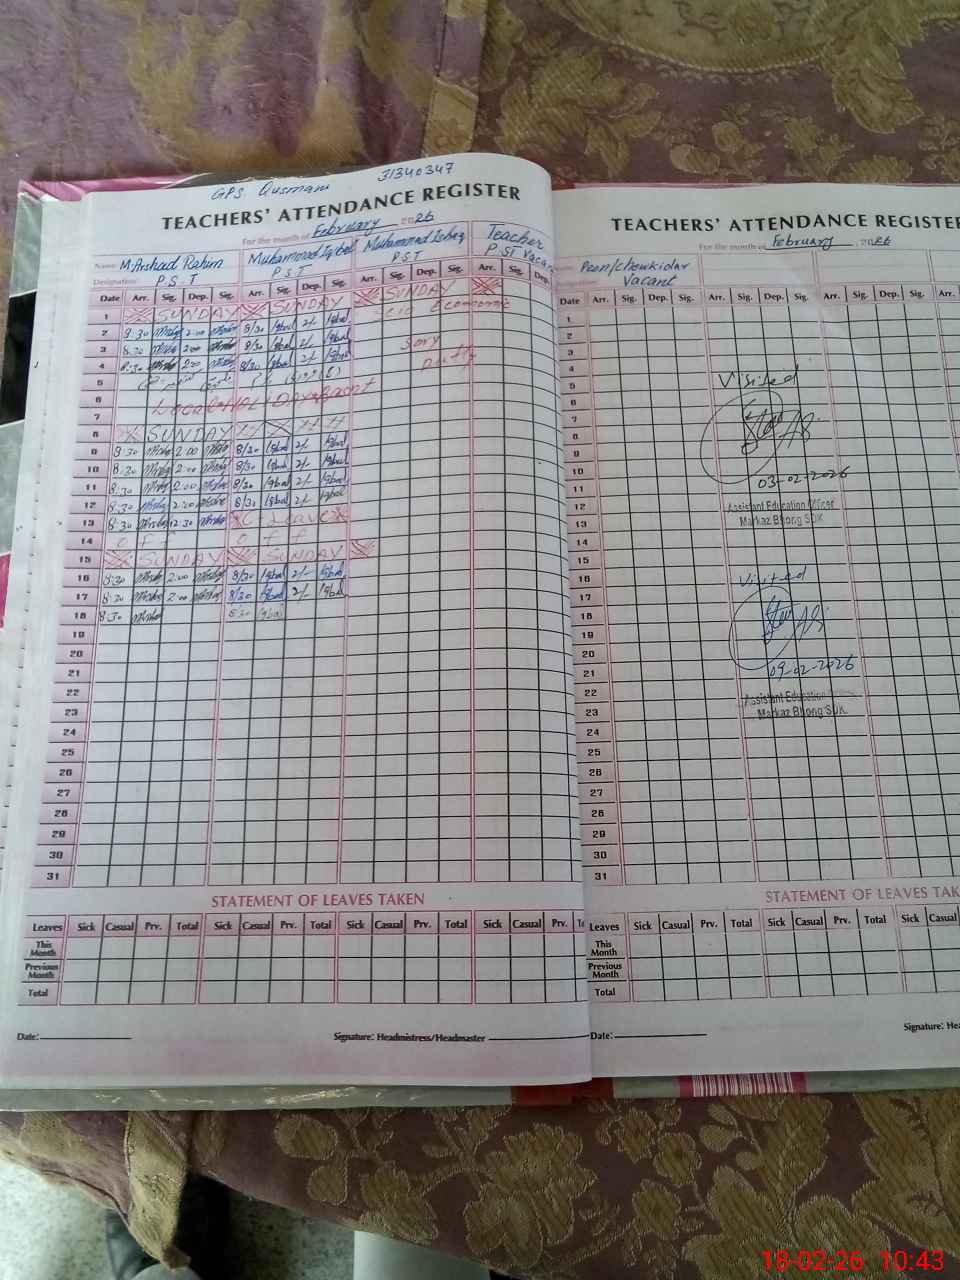 GPS. Qusmani 31340347
TEACHERS' ATTENDANCE REGISTER
For the month of February 2026
Name M Arshad Rahim Muhammad Iqbal Muhammad Ishaq Teacher
Designation P.S.T P.S.T P.S.T P.ST Vacant
Date Arr. Sig. Dep. Sig. Arr. Sig. Dep. Sig. Arr. Sig. Dep. Sig. Arr. Sig. Dep.
1 SUNDAY SUNDAY SUNDAY
2 8:30 2:00 8/30 Iqbal 2/- Iqbal Economic
3 8:30 2:00 8/30 Iqbal 2/- Iqbal
4 8:30 2:00 8/30 Iqbal 2/- Iqbal
5
6 Local Holiday
7
8 SUNDAY
9 8:30 2:00 8/30 Iqbal 2/- Iqbal
10 8:30 2:00 8/30 Iqbal 2/- Iqbal
11 8:30 2:00 8/30 Iqbal 2/- Iqbal
12 8:30 2:00 8/30 Iqbal 2/- Iqbal
13 8:30 12:30 C-Leave
14 o f f o f f
15 SUNDAY SUNDAY
16 8:30 2:00 8/30 Iqbal 2/- Iqbal
17 8:30 2:00 8/30 Iqbal 2/- Iqbal
18 8:30 8/30 Iqbal
19
20
21
22
23
24
25
26
27
28
29
30
31
STATEMENT OF LEAVES TAKEN
Leaves Sick Casual Prv. Total Sick Casual Prv. Total Sick Casual Prv. Total Sick Casual Prv.
This Month
Previous Month
Total
Date: Signature: Headmistress/Headmaster
TEACHERS' ATTENDANCE REGISTER
For the month of February, 2026
Peon/Chowkidar
Vacant
Date Arr. Sig. Dep. Sig. Arr. Sig. Dep. Sig. Arr. Sig. Dep. Sig. Arr.
1
2
3
4
5 Visited
6
7
8
9
10
11 03-02-2026
12 Assistant Education Officer
13 Markaz Bhong SDK
14
15
16 Visited
17
18
19
20
21 09-02-2026
22 Assistant Education
23 Markaz Bhong SDK
24
25
26
27
28
29
30
31
STATEMENT OF LEAVES
Leaves Sick Casual Prv. Total Sick Casual Prv. Total Sick Casual
This Month
Previous Month
Total
Date: Signature:
18-02-26 10:43